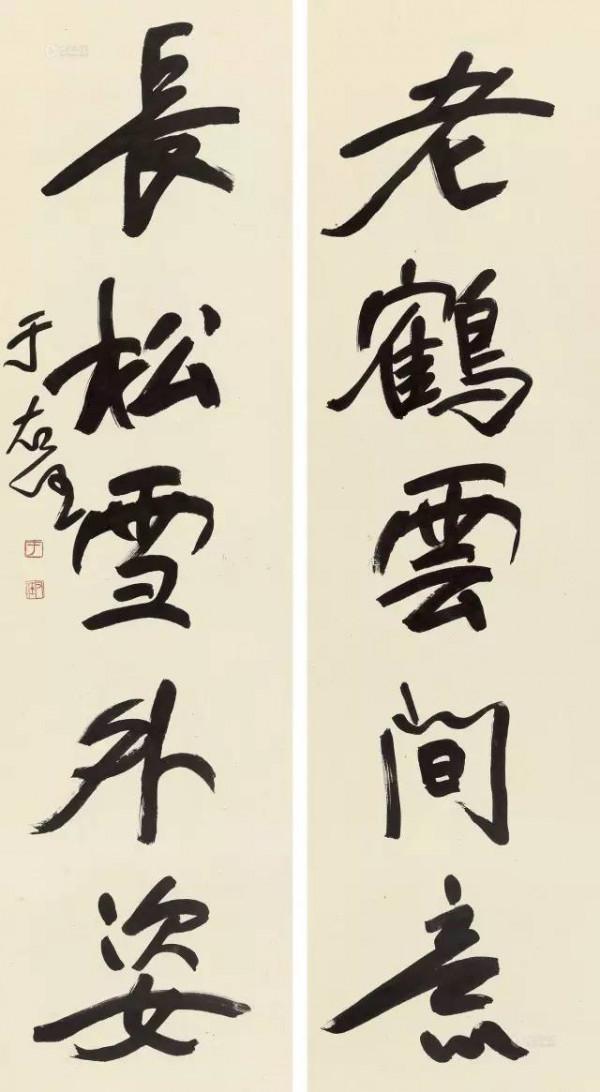 老鶴雲間意
長松雪外姿
于右